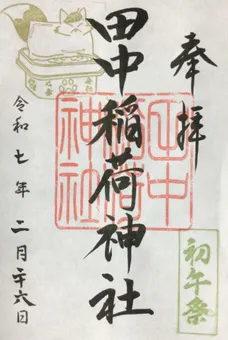 奉拝
初午祭
田中稲荷神社
田中
稲荷
神社
令和七年二月廿六日